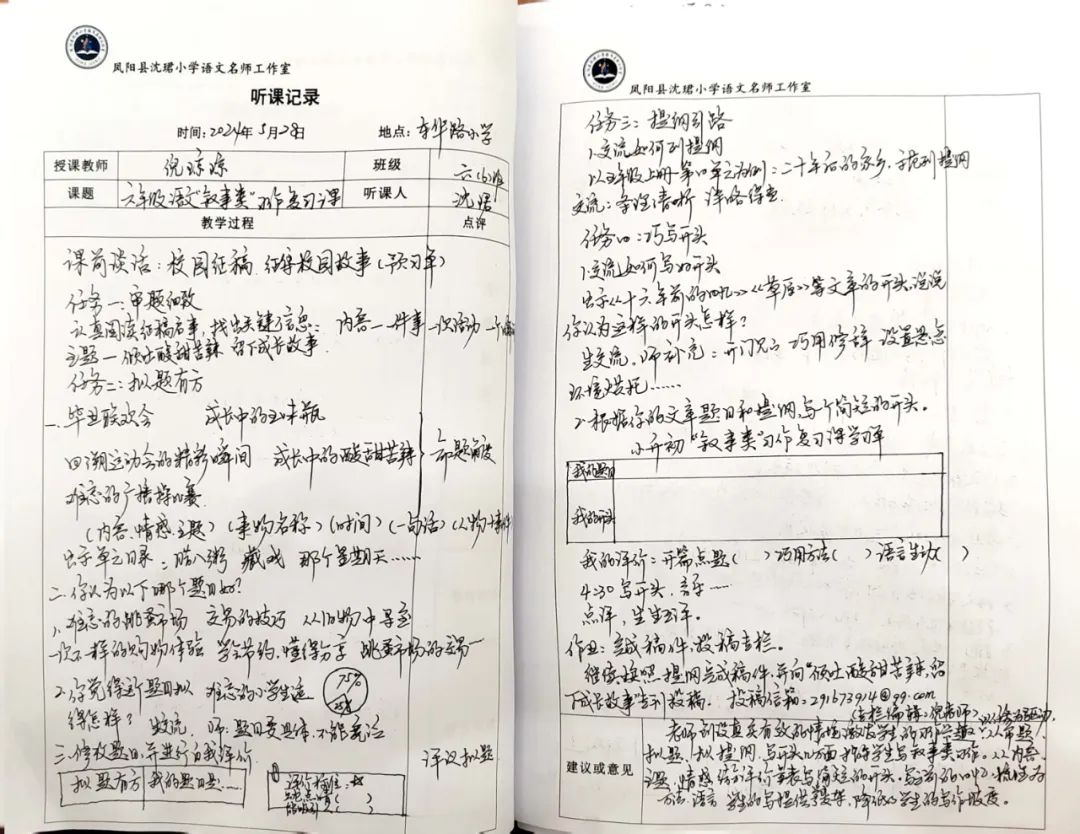 凤阳县沈珺小学语文名师工作室
听课记录
时间:2024年5月28日 地点:东华路小学
授课教师 倪琼琼 班级 六(6)班
课题 六年级语文"叙事类"习作复习课 听课人 沈珺
教学过程 点评
课前谈话:校园征稿 征集校园故事(预习单)
任务一:审题细致
认真阅读征稿启事,找出关键信息:内容—一件事 一次活动 一个
主题—倾吐酸甜苦辣 留下成长故事
任务二:拟题有方
一、毕业联欢会 成长中的五味瓶
回溯运动会的精彩瞬间 成长中的酸甜苦辣 命题角度
难忘的广播操比赛
(内容、情感、主题)(事物名称)(时间)(一句话)(人物+事件
出示单元目录:腊八粥 藏戏 那个星期天……
二、你认为以下哪个题目好?
1、难忘的跳蚤市场 交易的技巧 从购物中寻宝
一次不一样的购物体验 学会节约,懂得分享 跳蚤市场的交易
2、你觉得这个题目拟 难忘的小学生活 75% 25%
得怎样? 生交流,师:题目要具体,不能宽泛
三、修改题目,并进行自我评价 评议拟题
拟题有方 我的题目是:…… 评价标准:
凤阳县沈珺小学语文名师工作室
任务三:提纲引路
1、交流如何列提纲
以五年级上册第四单元为例:二十年后的家乡,示范列提纲
交流:条理清晰 详略得当
任务四:巧写开头
1、交流如何写好开头
出示《十六年前的回忆》《草原》等文章的开头,说说
你认为这样的开头怎样?
生交流,师补充:开门见山 巧用修辞 设置悬念
环境烘托……
2、根据你的文章题目和提纲,写一个简短的开头。
小升初"叙事类"习作复习课学习单
我的题目
我的开头
我的评价:开篇点题( )巧用方法( )语言生动( )
4:30写开头,音乐……
点评,生生互评。
作业:完成稿件,投稿专栏。
继续按照提纲完成稿件,并向"倾吐酸甜苦辣,留
下成长故事"专刊投稿。投稿信箱:291673914@qq.com
(专栏编辑:倪老师)以任务为驱动,
建议或意见
老师创设真实有效的情境,激发学生的习作兴趣,从审题、
拟题、拟提纲、写开头四方面指导学生写叙事类习作。从内容、
方法、语言 学生的写提供了支架,降低了学生的写作难度。